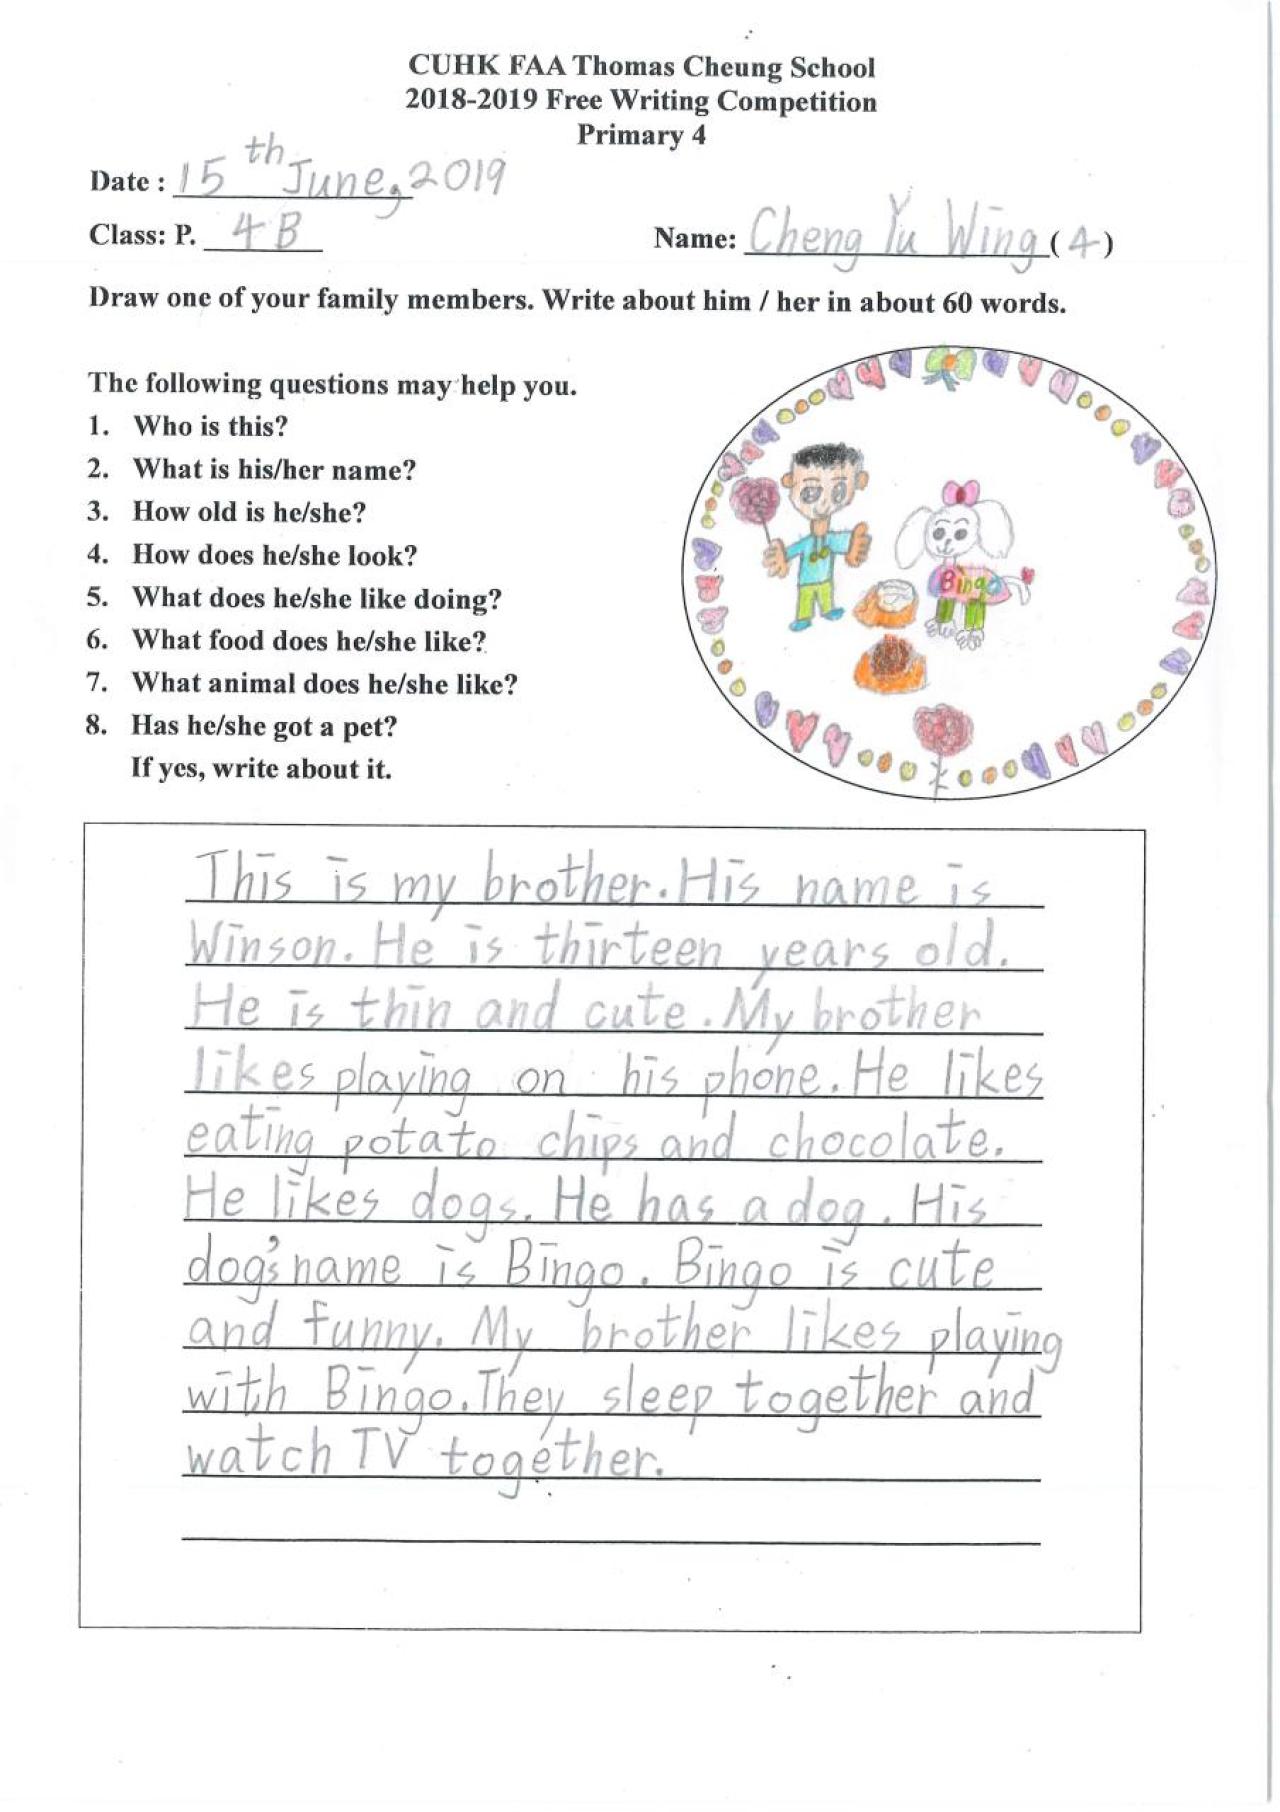 CUHK FAA Thomas Cheung School
2018-2019 Free Writing Competition
Primary 4
Date : 15th June, 2019
Class: P. 4B Name: Cheng Yu Wing (4)
Draw one of your family members. Write about him / her in about 60 words.
The following questions may help you.
1. Who is this?
2. What is his/her name?
3. How old is he/she?
4. How does he/she look?
5. What does he/she like doing?
6. What food does he/she like?
7. What animal does he/she like?
8. Has he/she got a pet?
If yes, write about it.
Bingo
This is my brother. His name is
Winson. He is thirteen years old.
He is thin and cute. My brother
likes playing on his phone. He likes
eating potato chips and chocolate.
He likes dogs. He has a dog. His
dog's name is Bingo. Bingo is cute
and funny. My brother likes playing
with Bingo. They sleep together and
watch TV together.